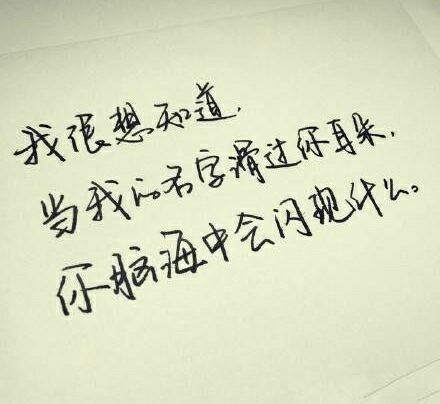 我很想知道，
当我的名字滑过你耳朵，
你脑海中会闪现什么。